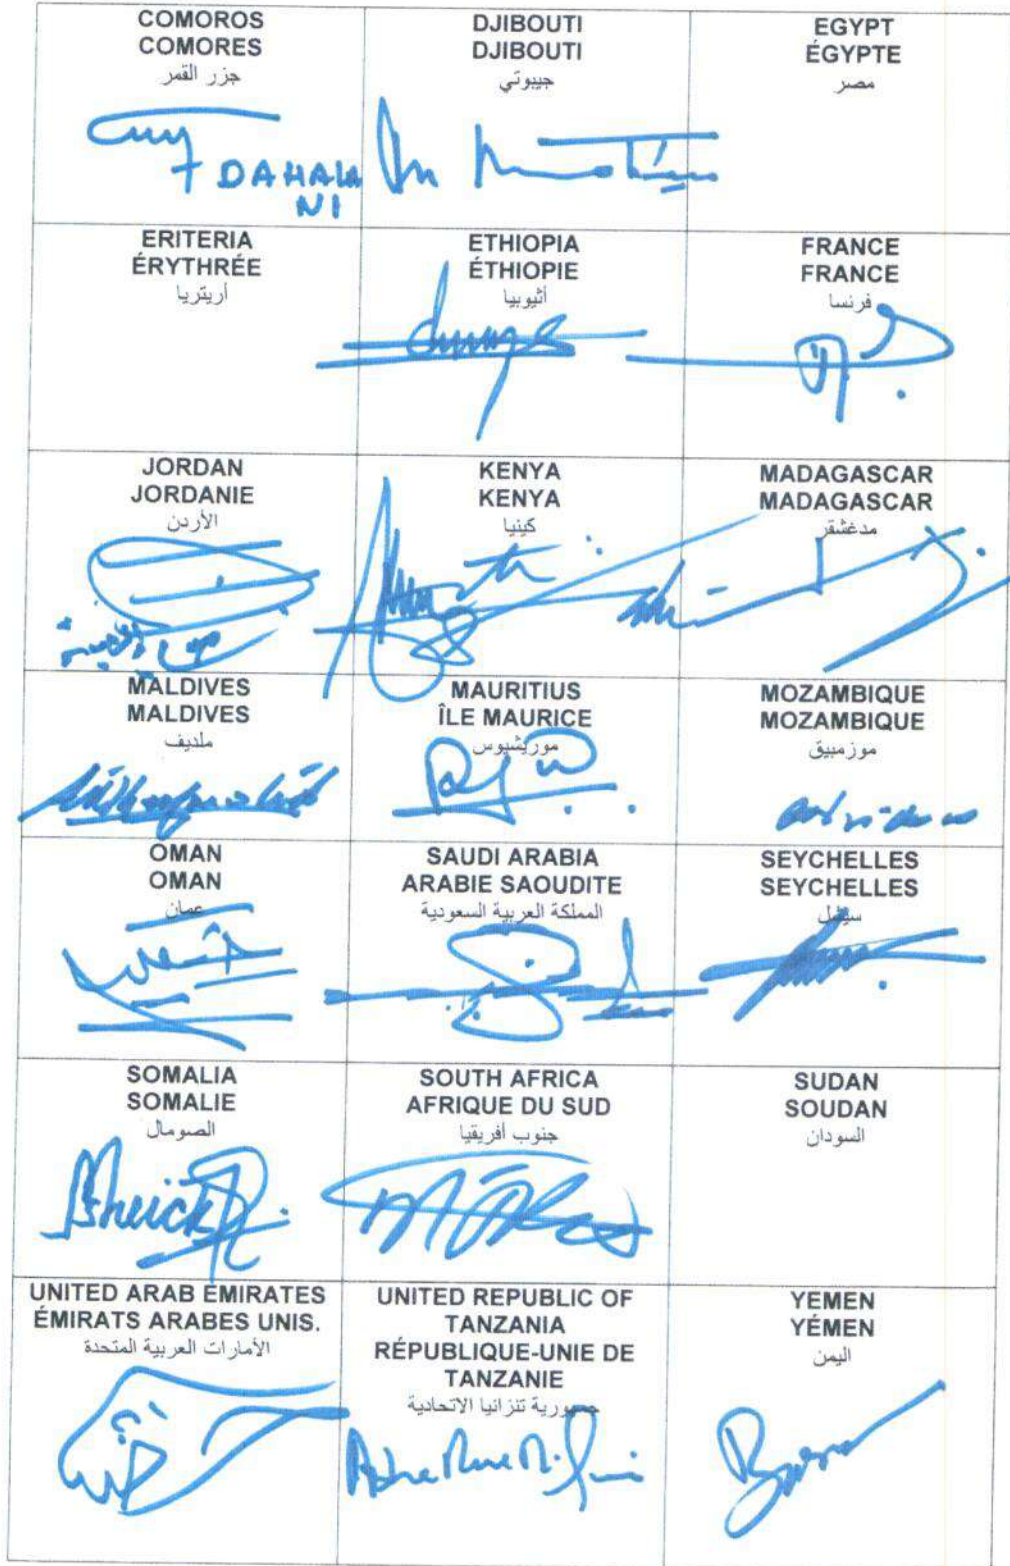 COMOROS
COMORES
جزر القمر
DAHALA
NI
DJIBOUTI
DJIBOUTI
جيبوتي
EGYPT
ÉGYPTE
مصر
ERITERIA
ÉRYTHRÉE
أريتريا
ETHIOPIA
ÉTHIOPIE
أثيوبيا
FRANCE
FRANCE
فرنسا
JORDAN
JORDANIE
الأردن
KENYA
KENYA
كينيا
MADAGASCAR
MADAGASCAR
مدغشقر
MALDIVES
MALDIVES
ملديف
MAURITIUS
ÎLE MAURICE
موريشيوس
MOZAMBIQUE
MOZAMBIQUE
موزمبيق
OMAN
OMAN
عمان
SAUDI ARABIA
ARABIE SAOUDITE
المملكة العربية السعودية
SEYCHELLES
SEYCHELLES
سيشل
SOMALIA
SOMALIE
الصومال
SOUTH AFRICA
AFRIQUE DU SUD
جنوب أفريقيا
SUDAN
SOUDAN
السودان
UNITED ARAB EMIRATES
ÉMIRATS ARABES UNIS.
الأمارات العربية المتحدة
UNITED REPUBLIC OF
TANZANIA
RÉPUBLIQUE-UNIE DE
TANZANIE
جمهورية تنزانيا الاتحادية
YEMEN
YÉMEN
اليمن